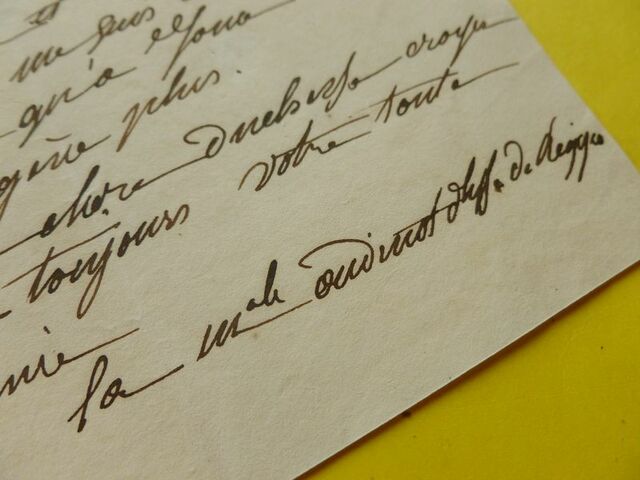 me suis
qu'à
plus.
chère Duchesse croyez
toujours votre toute
la male oudinot dhsse de Reggio